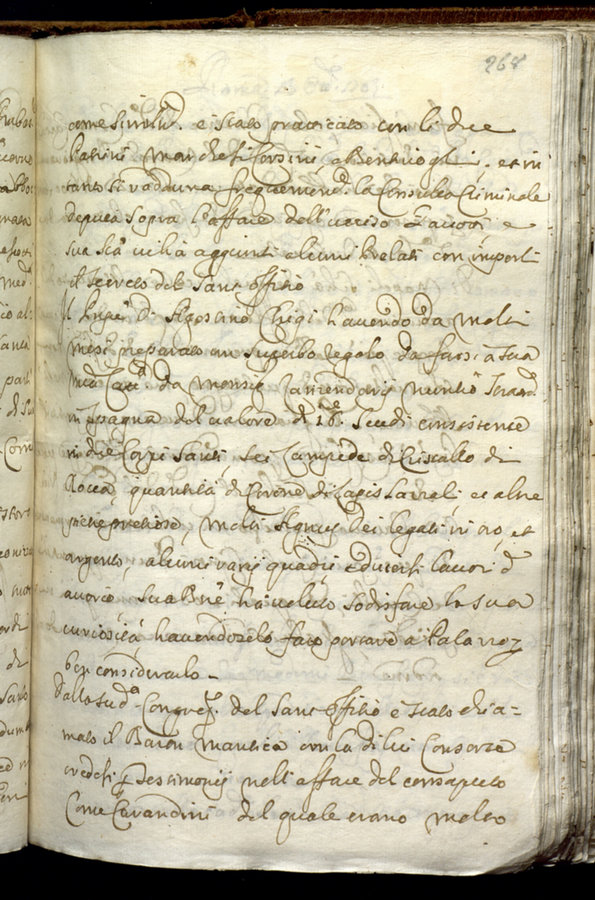 268
come si vole. e stato praticato con li due
Latini Marchesi Corsini e Bentivogli; et in
tanto si raduna frequentem.e la Consulta Criminale
deputa sopra l'affare dell'ucciso e
sua Stà vi hà aggiunti alcuni Prelati con
il Secreto del Sant'Offitio
Il D. Agostino Chigi havendo da molti
mesi preparato un superbo regalo da farsi à sua
da Monsig. Nuntio
in Spagna del valore di 18 Scudi consistente
in due Corpi Santi, sei Lampede di Cristallo di
Rocca, quantità di Corone di Lapis Lazzoli, et altre
pietre pretiose, molti Agnus Dei legati in oro, et
argento, alcuni varij quadri, e diversi lavori d
avorio, sua Bne hà voluto sodisfare la sua
curiosità havendoselo fatto portare à Palazzo p
ben considerarlo -
Dalla sud.a Congreg. del Sant'Offitio è stato chia=
mato il Baron Mantica con la di lui Consorte
credesi p testimonij nell'affare del consaputo
Come Gavardini del quale erano molto